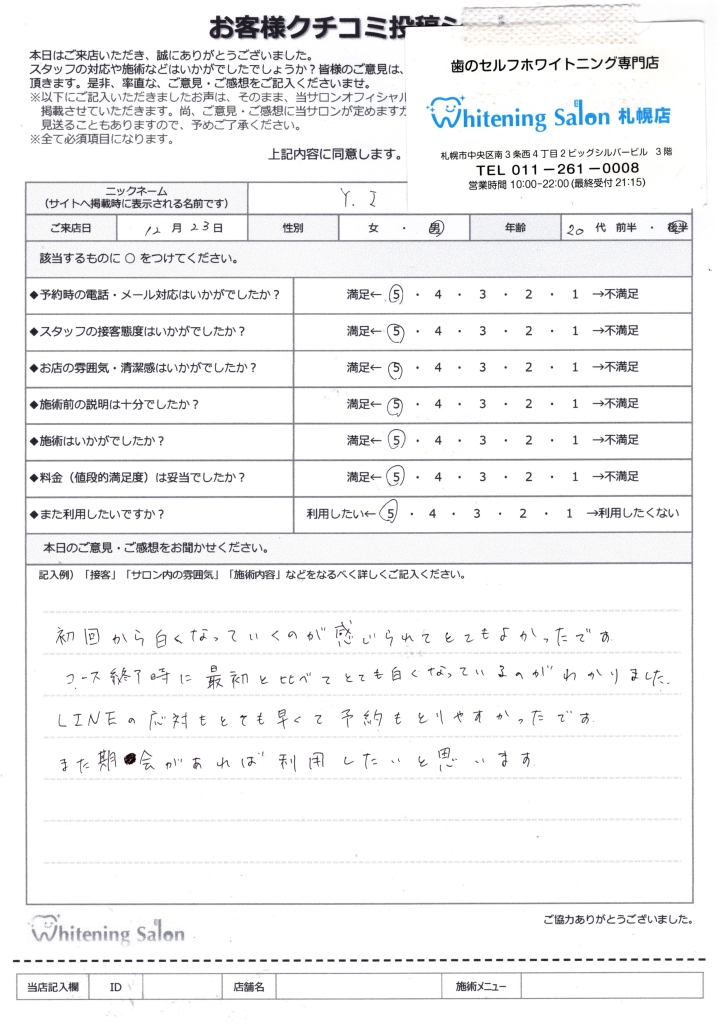 お客様クチコミ投稿シ
本日はご来店いただき、誠にありがとうございました。
スタッフの対応や施術などはいかがでしたでしょうか?皆様のご意見は、
頂きます。是非、率直な、ご意見・ご感想をご記入くださいませ。
※以下にご記入いただきましたお声は、そのまま、当サロンオフィシャル
掲載させていただきます。尚、ご意見・ご感想に当サロンが定めますガ
見送ることもありますので、予めご了承ください。
※全て必須項目になります。
上記内容に同意します。
歯のセルフホワイトニング専門店
Whitening Salon 札幌店
札幌市中央区南3条西4丁目2ビッグシルバービル 3階
TEL 011-261-0008
営業時間 10:00-22:00 (最終受付 21:15)
ニックネーム
(サイトへ掲載時に表示される名前です)
Y. I
ご来店日 12 月 23 日 性別 女 ・ 男 年齢 20 代 前半 ・ 後半
該当するものに ○ をつけてください。
◆予約時の電話・メール対応はいかがでしたか? 満足← 5 ・ 4 ・ 3 ・ 2 ・ 1 →不満足
◆スタッフの接客態度はいかがでしたか? 満足← 5 ・ 4 ・ 3 ・ 2 ・ 1 →不満足
◆お店の雰囲気・清潔感はいかがでしたか? 満足← 5 ・ 4 ・ 3 ・ 2 ・ 1 →不満足
◆施術前の説明は十分でしたか? 満足← 5 ・ 4 ・ 3 ・ 2 ・ 1 →不満足
◆施術はいかがでしたか? 満足← 5 ・ 4 ・ 3 ・ 2 ・ 1 →不満足
◆料金(値段的満足度)は妥当でしたか? 満足← 5 ・ 4 ・ 3 ・ 2 ・ 1 →不満足
◆また利用したいですか? 利用したい← 5 ・ 4 ・ 3 ・ 2 ・ 1 →利用したくない
本日のご意見・ご感想をお聞かせください。
記入例)「接客」「サロン内の雰囲気」「施術内容」などをなるべく詳しくご記入ください。
初回から白くなっていくのが感じられてとてもよかったです。
コース終了時に最初と比べてとても白くなっているのがわかりました。
LINEの応対もとても早くて予約もとりやすかったです。
また期会があれば利用したいと思います。
Whitening Salon
ご協力ありがとうございました。
当店記入欄 ID 店舗名 施術メニュー